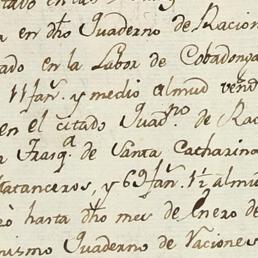 a en dho Quaderno de Racion
ado en la Labor de Cobadonga
11 fans. y medio almud vend
en el citado Quadno. de Rac
a Frasqa. de Santa Catharina
atanceros, y 69 fans. 1½ almu
hasta dho mes de Enero de
mismo Quaderno de Raciones